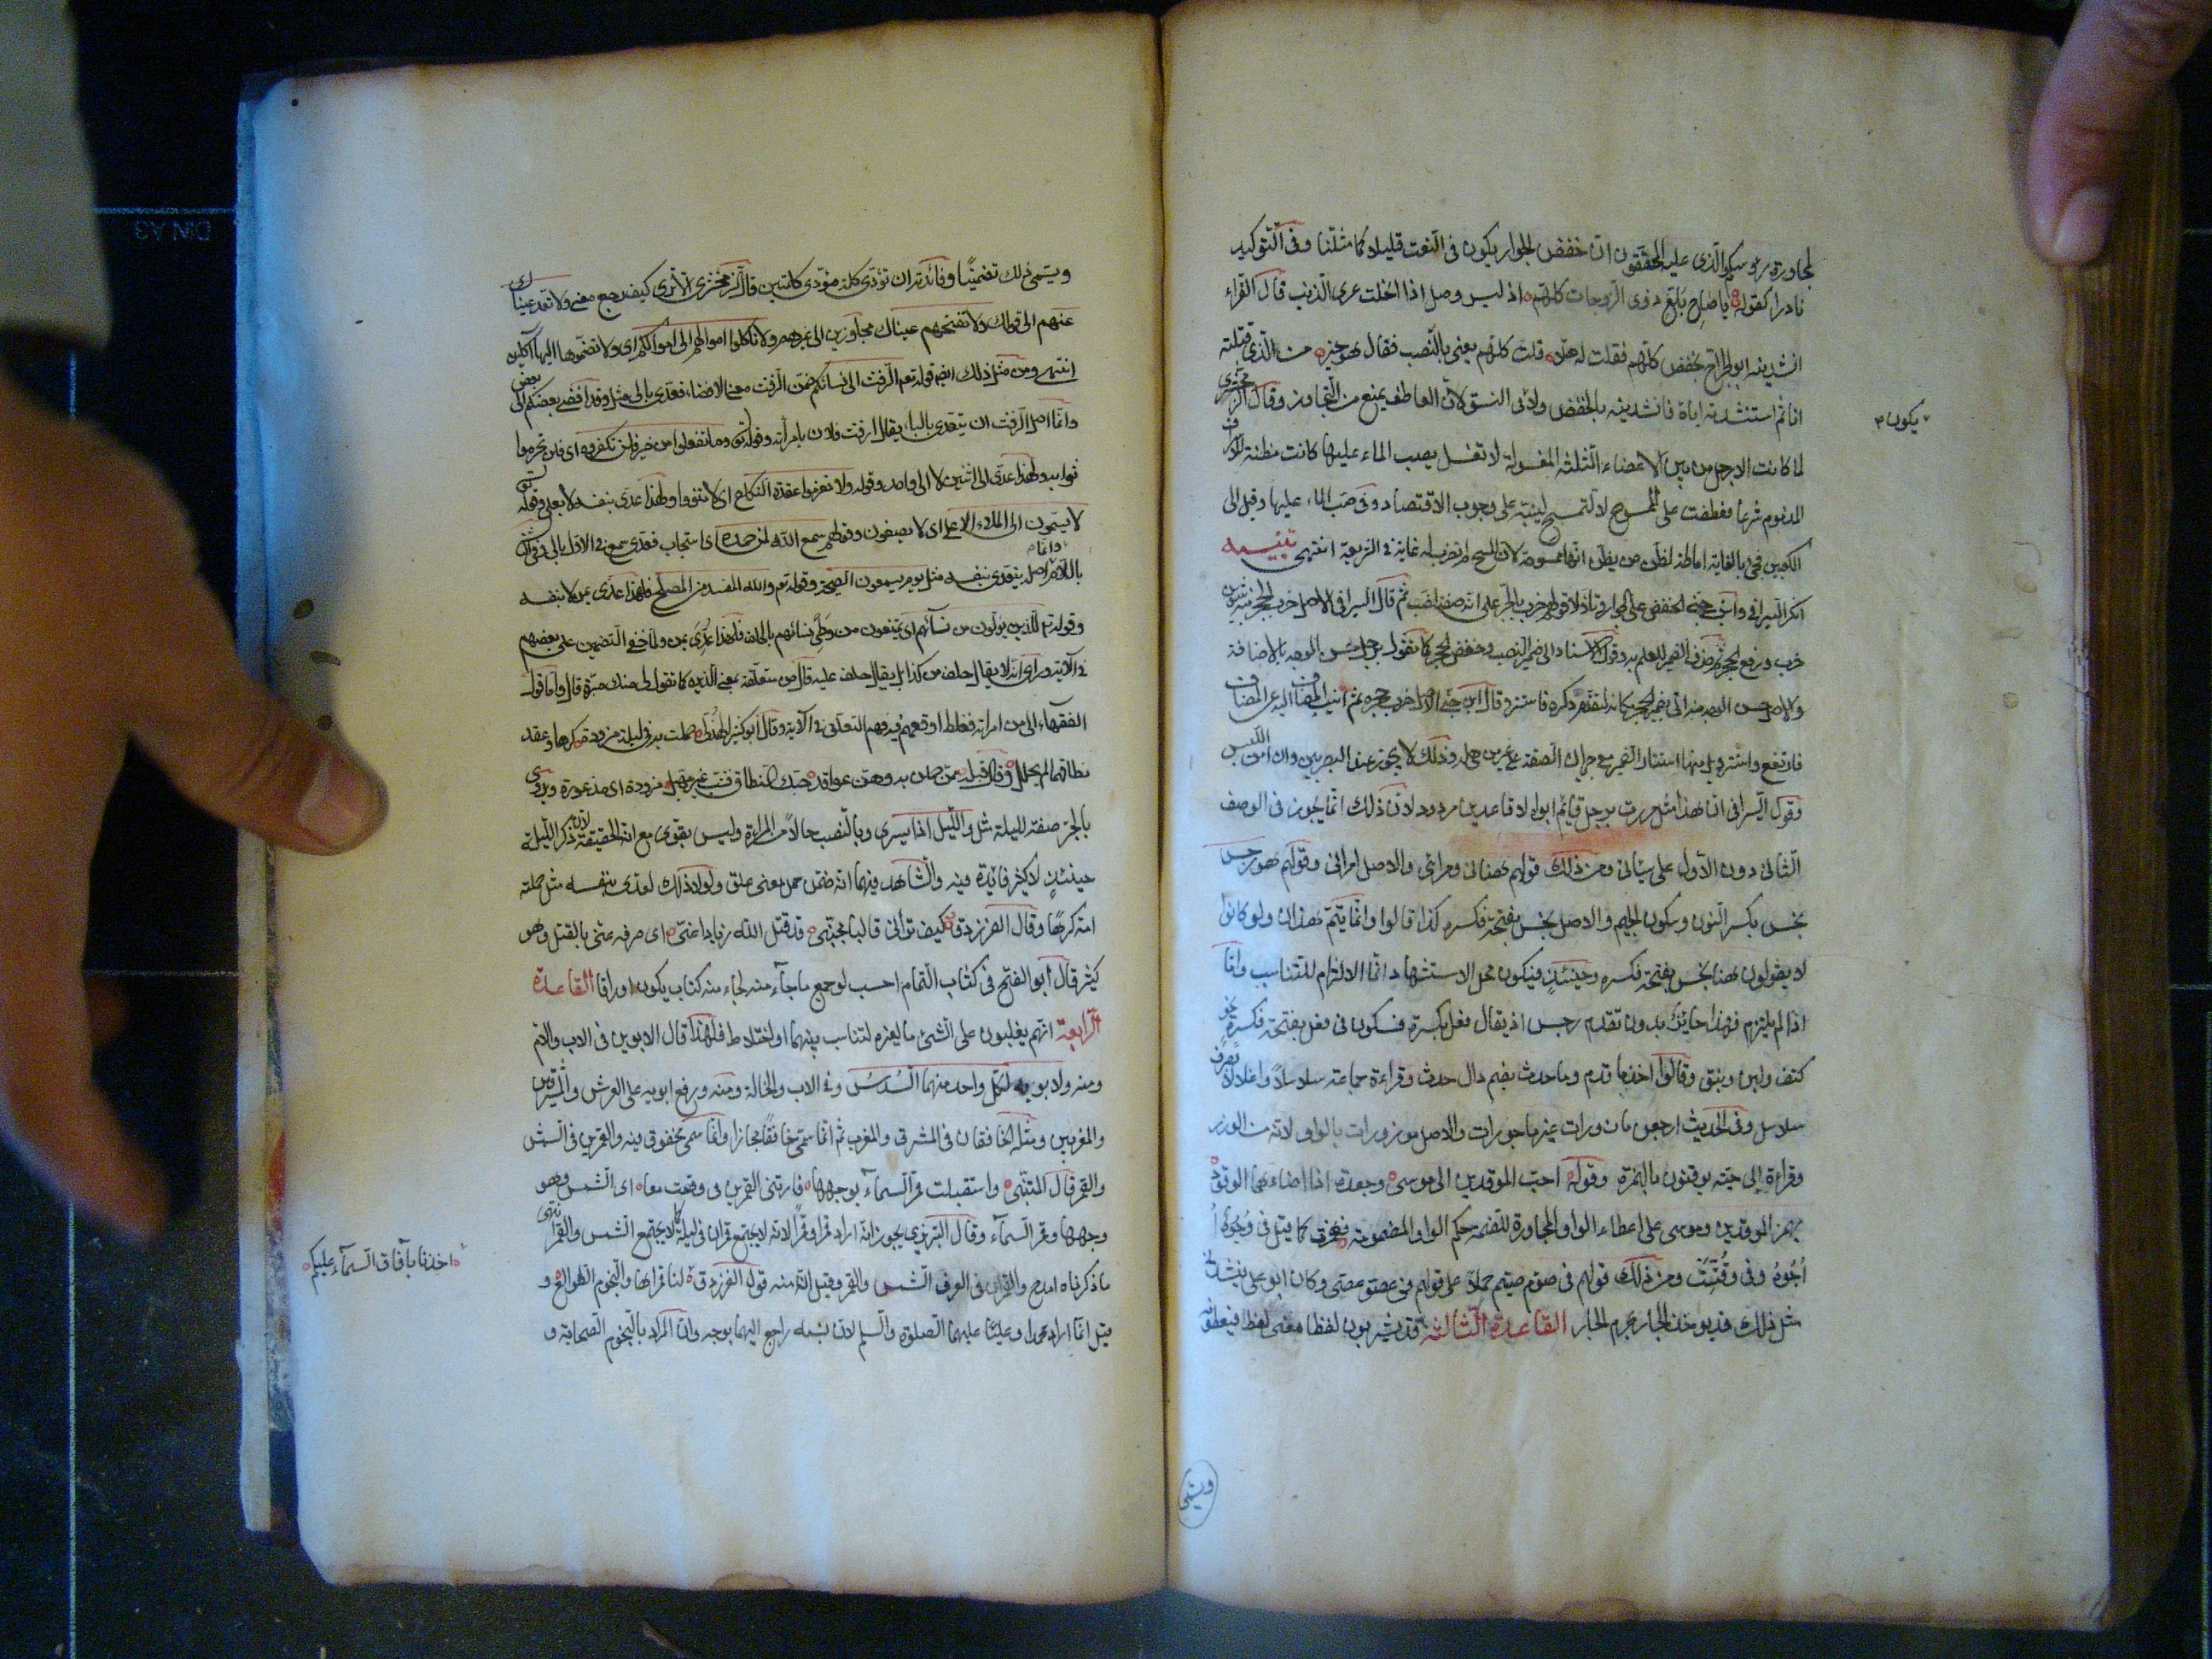 لمجاورة برؤسكم والذى عليه المحققون ان خفض الجوار يكون فى النعت قليلا كما مثلنا وفى التوكيد
نادرا كقوله يا صاح بلغ ذوى الزوجات كلهم اذ ليس وصل اذا انحلت عرى الذنب قال الفراء
انشدنيه ابو الجراح بخفض كلهم فقلت له هلا قلت كلهم يعنى بالنصب فقال هو خير من الذى قلته
انا ثم استنشدته اياه فانشدنيه بالخفض ولا فى النسق لان العاطف يمنع من التجاور وقال الزمخشرى
يكون
لما كانت الارجل من بين الاعضاء الثلثة المغسولة لا تغسل بصب الماء عليها كانت مظنة للاسراف
المذموم شرعا فعطفت على الممسوح لا لتمسح لينبه على وجوب الاقتصاد فى صب الماء عليها وقيل الى
الكعبين فجئ بالغاية اماطة لظن من يظن انها ممسوحة لان المسح لم تضرب له غاية فى الشريعة انتهى تنبيه
انكر السيرافى وابن جنى الخفض على الجوار وتأولا قولهم خرب بالجر على انه صفة لضب ثم قال السيرافى الاصل خرب الجحر منه بتنوين
خرب ورفع الجحر ثم حذف الضمير للعلم به وحول الاسناد الى ضمير الضب وخفض الجحر كما تقول برجل حسن الوجه بالاضافة
والاصل حسن الوجه منه اتى بضمير الجحر مكانه لتقدم ذكره فاستتر وقال ابن جنى الاصل خرب جحره ثم انيب المضاف اليه عن المضاف
فارتفع واستتر ويلزمهما استتار الضمير مع جريان الصفة على غير من هى له وذلك لا يجوز عند البصريين وان امن اللبس
وقول السيرافى ان هذا مثل مررت برجل قائم ابواه لا قاعدين مردود لان ذلك انما يجوز فى الوصف
الثانى دون الاول على ما سيأتى ومن ذلك قولهم هنانى ومرانى والاصل امرانى وقولهم هو رجس
نجس بكسر النون وسكون الجيم والاصل نجس بفتحة فكسرة كذا قالوا وانما يتم هذا ان لو كانوا
لا يقولون هنا نجس بفتحة فكسرة وحينئذ فيكون محل الاستشهاد انما الالتزام للتناسب واما
اذا لم يلتزم فهذا جائز بدون تقدم رجس اذ يقال فعل بكسرة فسكون فى فعل بفتحة فكسرة نحو
كتف ولبن ونبق وقالوا اخذه ما قدم وما حدث بضم دال حدث وقراءة جماعة سلاسلا واغلالا بصرف
سلاسل وفى الحديث ارجعن مأزورات غير مأجورات والاصل موزورات بالواو لانه من الوزر
وقراءة ابى حية يوقنون بالهمزة وقوله احب الموقدين الى موسى وجعدة اذا اضاءهما الوقود
بهمز الموقدين وموسى على اعطاء الواو المجاورة للضمة حكم الواو المضمومة فهمزت كما قيل فى وجوه
اجوه وفى وقتت اقتت ومن ذلك قولهم فى صوم صيم حملا على قولهم فى عصو عصى وكان ابو على ينشد فى
مثل ذلك قد يؤخذ الجار بجرم الجار القاعدة الثالثة قد يشربون لفظا معنى لفظ فيعطونه
ويسمى
ويسمى ذلك تضمينا وفائدته ان تؤدى كلمة مؤدى كلمتين قال الزمخشرى الا ترى كيف رجع معنى ولا تعد عيناك
عنهم الى قولك ولا تقتحمهم عيناك مجاوزين الى غيرهم ولا تأكلوا اموالهم الى اموالكم اى ولا تضموها اليها آكلين
انتهى ومن مثل ذلك ايضا قوله تعم الرفث الى نسائكم ضمن الرفث معنى الافضاء فعدى بالى مثل وقد افضى بعضكم الى بعض
وانما اصل الرفث ان يتعدى بالباء يقال ارفث فلان بامرأته وقوله تع وما تفعلوا من خير فلن تكفروه اى فلن تحرموا
ثوابه ولهذا عدى الى اثنين لا الى واحد وقوله ولا تعزموا عقدة النكاح اى لا تنووا ولهذا عدى بنفسه لا بعلى وقوله
لا يسمعون الى الملاء الاعلى اى لا يصغون وقولهم سمع الله لمن حمده اى استجاب فعدى يسمع فى الاول بالى وفى الثانى
باللام وانما اصله يتعدى بنفسه مثل يوم يسمعون الصيحة وقوله تعم والله يعلم المفسد من المصلح فلهذا عدى بمن لا بنفسه
وقوله تعم للذين يؤلون من نسائهم اى يمتنعون من وطئ نسائهم بالحلف فلهذا عدى بمن ولما خفى التضمين على بعضهم
فى الآية ورأى انه لا يقال حلف من كذا بل يقال حلف عليه قال من متعلقة بمعنى للذين كما تقول لى منك مبرة قال واما قول
الفقهاء الى من امرأته فغلط اوقعهم فيه فهم التعلق فى الآية وقال ابو كبير الهذلى حملت به فى ليلة مزؤدة كرها وعقد
نطاقها لم يحلل وقال قبله ممن حملن به وهن عواقد حبك النطاق فشب غير مهبل مزؤدة اى مذعورة ويروى
بالجر صفة لليلة مثل والليل اذا يسرى وبالنصب حالا من المراءة وليس بقوى مع انه الحقيقة لان ذكر الليلة
حينئذ لا كبير فائدة فيه والشاهد فيهما انه ضمن حمل معنى علق ولولا ذلك لعدى بنفسه مثل حملته
امه كرها وقال الفرزدق كيف ترانى قالبا مجنى قد قتل الله زيادا عنى اى صرفه عنى بالقتل وهو
كثير قال ابو الفتح فى كتاب التمام احسب لو جمع ما جاء منه لجاء منه كتاب يكون اوراقا القاعدة
الرابعة انهم يغلبون على الشئ ما لغيره لتناسب بينهما او اختلاط فلهذا قال الابوين فى الاب والام
ومنه ولابويه لكل واحد منهما السدس وفى الاب والخالة ومنه ورفع ابويه على العرش والمشرقين
والمغربين ومثله الخافقان فى المشرق والمغرب ثم انما سمى خافقا مجازا وانما سمى مخفوق فيه والقمرين فى الشمس
والقمر قال المتنبى واستقبلت قمر السماء بوجهها فارتنى القمرين فى وقت معا اى الشمس وهو
وجهها وقمر السماء وقال التبريزى يجوز انه اراد قمرا وقمرا لانه لا يجتمع قمران فى ليلة كما لا يجتمع الشمس والقمر انتهى
اخذنا بآفاق السماء عليكم
ما ذكرناه امدح والقمران فى العرف الشمس والقمر وقيل ان منه قول الفرزدق لنا قمراها والنجوم الطوالع و
قيل انما اراد محمدا وعليا عليهما الصلوة والسلم لان نسبه راجع اليهما بوجه وان المراد بالنجوم الصحابة و